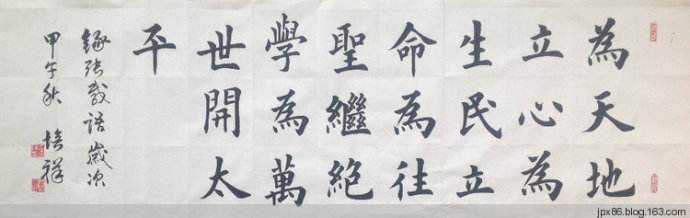 為天地
立心為
生民立
命為往
聖繼絕
學為萬
世開太
平
錄張載語歲次
甲午秋 培祥
jpx86.blog.163.com